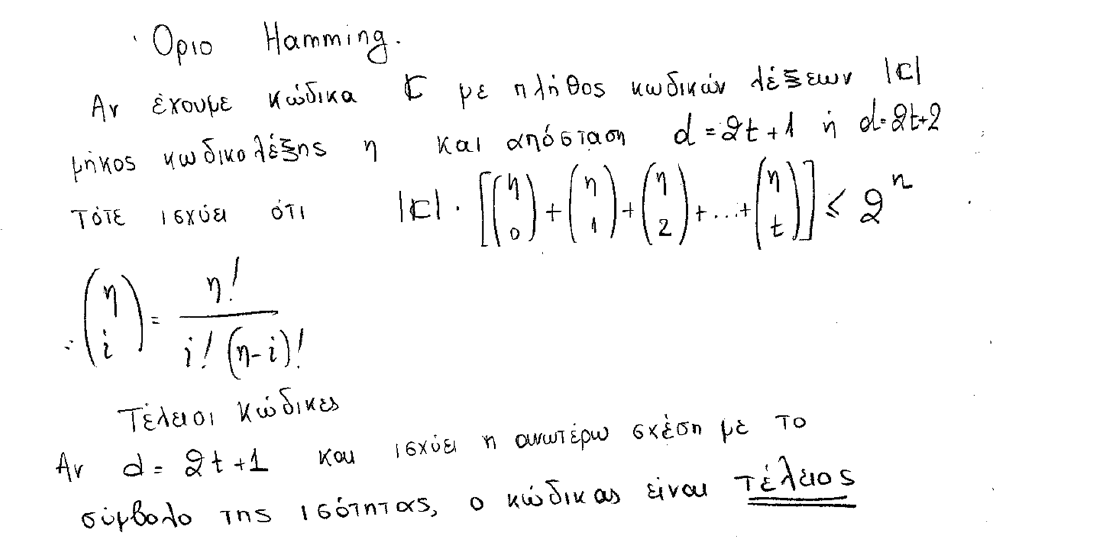 Οριο Hamming.
Αν έχουμε κώδικα ℂ με πλήθος κωδικών λέξεων |ℂ|
μήκος κωδικολέξης η και απόσταση d = 2t + 1 ή d = 2t+2
Τότε ισχύει ότι |ℂ| · [(η 0) + (η 1) + (η 2) + ... + (η t)] ≤ 2^n
(η i) = η! / i! (η-i)!
Τέλειοι κώδικες
Αν d = 2t +1 και ισχύει η ανωτέρω σχέση με το
σύμβολο της ισότητας, ο κώδικας είναι τέλειος